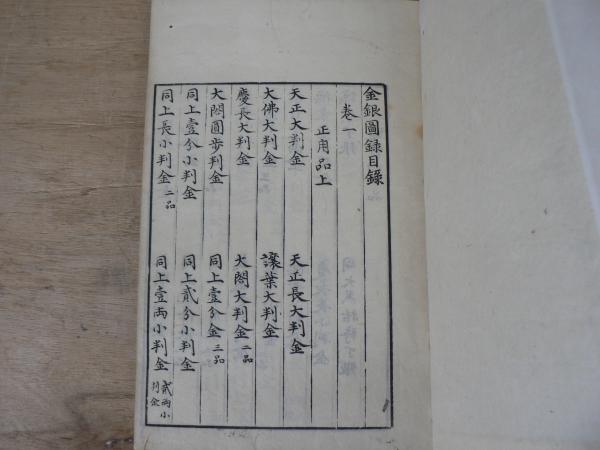 金銀圖録目録
卷一
正用品上
天正大判金 天正長大判金
大佛大判金 譲葉大判金
慶長大判金 大閤大判金二品
大閤圓歩判金 同上壹分金三品
同上壹分小判金 同上貳分小判金
同上長小判金二品 同上壹両小判金貳両小判金